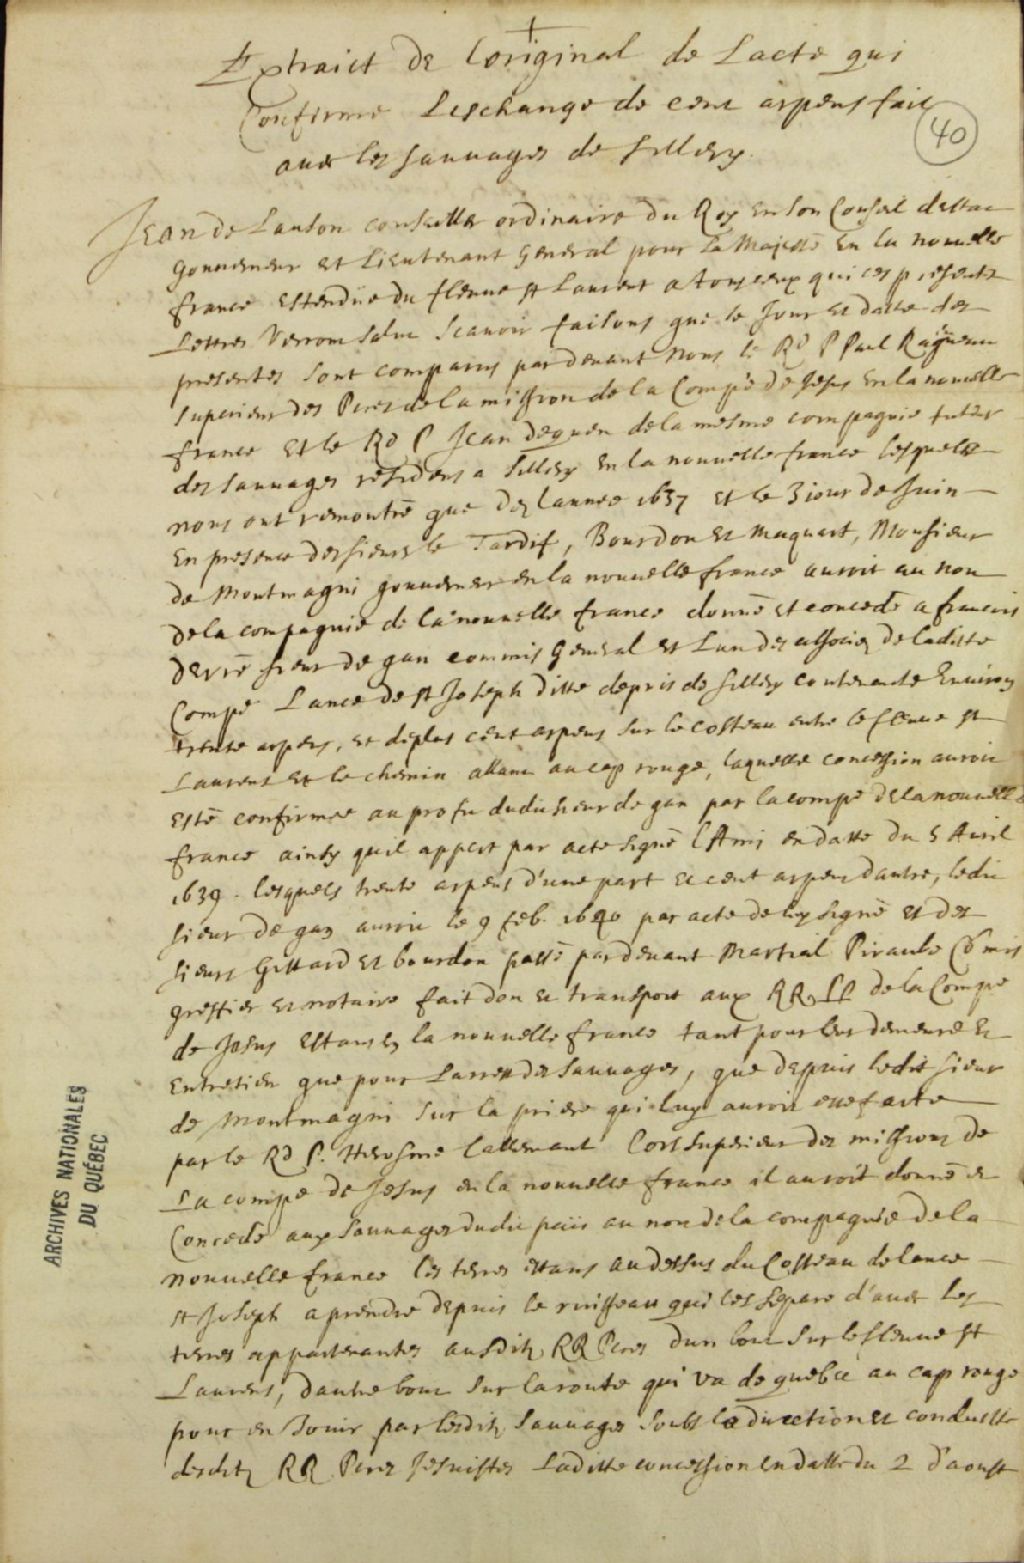 Extraict de loriginal de Lacte qui
Confirme Leschange de cent arpens fait
avec les sauvages de Sillery.
40
Jean de Lauson conseiller ordinaire du Roy en son Conseil destat
Gouverneur et Lieutenant General pour sa Majesté En la nouvelle
france Estendüe du fleuve st Laurent a tous ceux qui ces presentes
Lettres Verront salut scavoir faisons que le Jour et datte des
presentes sont comparus pardevant nous le Rd P Paul Ragueneau
superieur des Peres de la mission de la Compe de Jesus En la nouvelle
france et le Rd P Jean dequen de la mesme compagnie tuter
des sauvages residens a Sillery En la nouvelle france lesquels
nous ont remontré que des lannee 1637 et le 3 jour de Juin
En presence des sieurs le Tardif, Bourdon et Maquart, Monsieur
de Montmagni gouverneur en la nouvelle france auroit au nom
de la compagnie de la nouvelle france donné et concedé a francois
derré sieur de gan commis General et Lun des associez de laditte
Compe Lance de st Joseph ditte depuis de Sillery contenante Environ
trente arpens, et de plus cent arpens sur le costeau entre le fleuve st
Laurens et le chemin allant au cap rouge, laquelle concession auroit
esté confirmee au profit dudit sieur de gan par la compe de la nouvelle
france ainsy quil appert par acte signé lAmi en datte du 5 Avril
1639. lesquels trente arpens d'une part et cent arpens dautre, ledit
sieur de gan auroit le 9 feb. 1640 par acte de luy signé et des
sieurs Giffard et bourdon passé pardevant Martial Piraube Comis
greffier et notaire fait don et transport aux RR PP de la Compe
de Jesus Estans en la nouvelle france tant pour leur demeure et
Entretien que pour Larrest des sauvages, que depuis ledit sieur
de Montmagni sur la priere qui luy auroit esté faite
par le Rd P. Hierosme lallemant lors superieur des missions de
La compe de Jesus en la nouvelle france il auroit donné et
Concedé aux sauvages dudit païs au nom de la compagnie de la
nouvelle france les terres estans au dessus du Costeau de lance
st Joseph a prendre depuis le ruisseau qui les separe d'avec les
terres appartenantes ausdits RR Peres dun bout sur le fleuve st
Laurens, dautre bout sur la route qui va de quebec au cap rouge
pour en jouir par lesdits sauvages soubs la direction et conduitte
desdits RR Peres Jesuistes Laditte concession en datte du 2 d'aoust
ARCHIVES NATIONALES
DU QUÉBEC